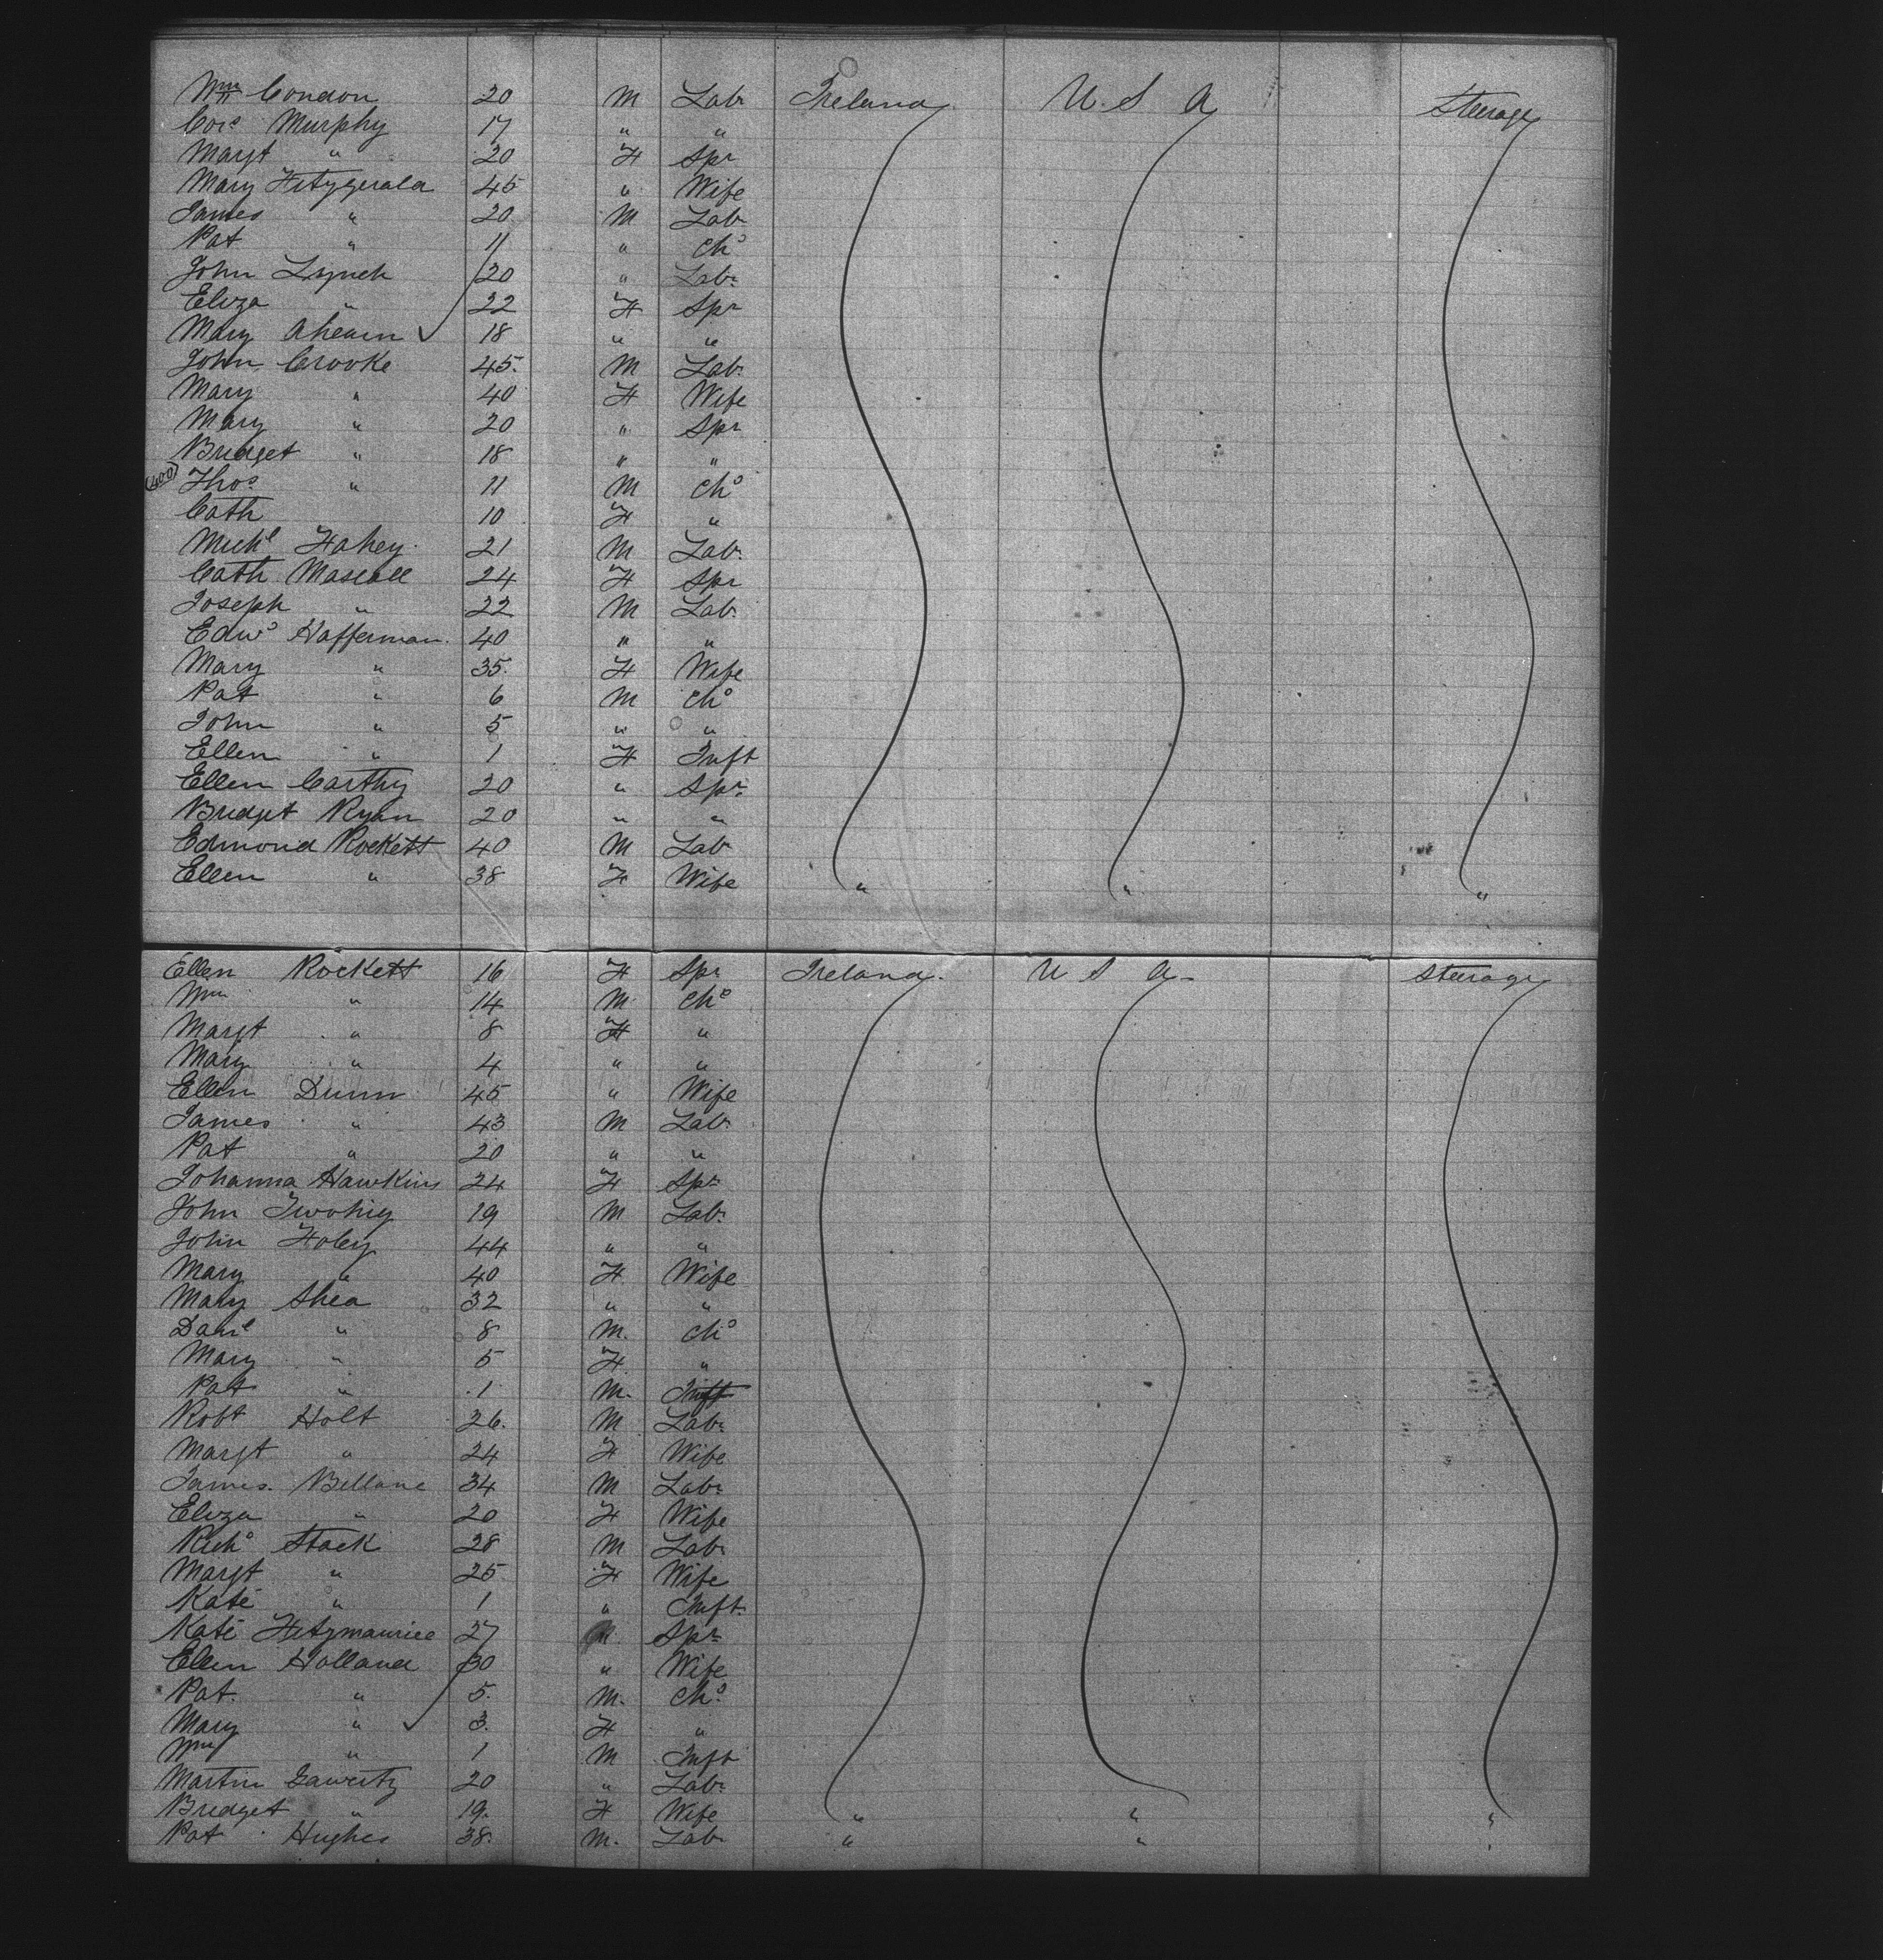 Wm Condon 20 M Labr Ireland U.S A Steerage
Cors Murphy 17 " "
Margt " 20 F Spr
Mary Fitzgerald 45 " Wife
James " 20 M Labr
Pat " 11 " Chd
John Lynch 20 " Labr
Eliza " 22 F Spr
Mary Ahearn 18 " "
John Crooke 45 M Labr
Mary " 40 F Wife
Mary " 20 " Spr
Bridget " 18 " "
(400) Thos " 11 M Chd
Cath 10 F "
Michl Fahey 21 M Labr
Cath Mascall 24 F Spr
Joseph " 22 M Labr
Edwd Hafferman 40 " "
Mary " 35 F Wife
Pat " 6 M Chd
John " 5 " "
Ellen " 1 F Inft
Ellen Carthy 20 " Spr
Bridget Ryan 20 " "
Edmond Rockett 40 M Lab
Ellen " 38 F Wife " " "
Ellen Rockett 16 F Spr Ireland U S A Steerage
Wm " 14 M Chd
Margt " 8 F "
Mary " 4 " "
Ellen Dunn 45 " Wife
James " 43 M Labr
Pat " 20 " "
Johanna Hawkins 24 F Spr
John Twohig 19 M Labr
John Foley 44 " "
Mary " 40 F Wife
Mary Shea 32 " "
Danl " 8 M Chd
Mary " 5 F "
Pat " 1 M Inft
Robt Holt 26 M Labr
Margt " 24 F Wife
James Bellane 34 M Labr
Eliza " 20 F Wife
Richd Stack 28 M Labr
Margt " 25 F Wife
Kate " 1 " Inft
Kate Fitzmaurice 27 " Spr
Ellen Holland 30 " Wife
Pat " 5 M Chd
Mary " 3 F "
Wm " 1 M Inft
Martin 20 " Labr
Bridget " 19 F Wife " " "
Pat Hughes 38 M Lab " " "